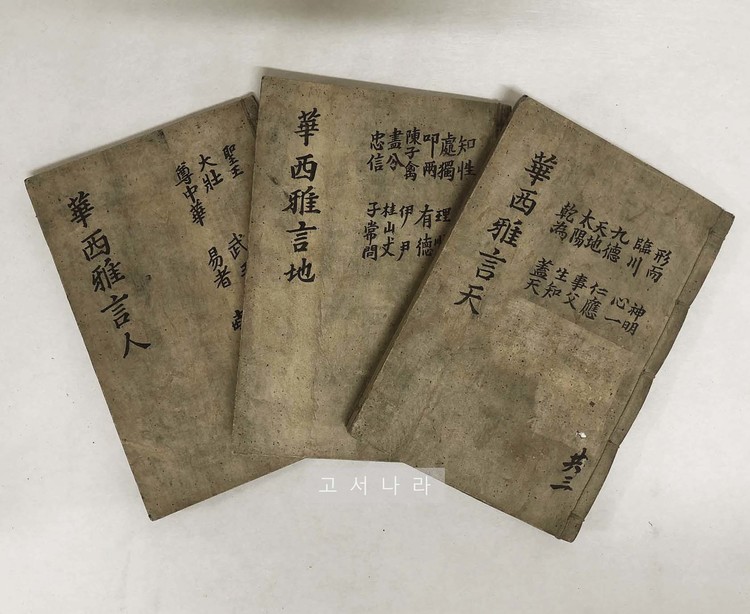 華西雅言天
形而 神明
臨川 心一
九德 仁應
天地 事父
太陽 生知
乾為 蓋天
共三
華西雅言地
知性
處獨 理
叩兩 有德
陳子禽 伊尹
盡分 桂山丈
忠信 子常問
華西雅言人
聖王
大壯 武
尊中華 易者
고서나라